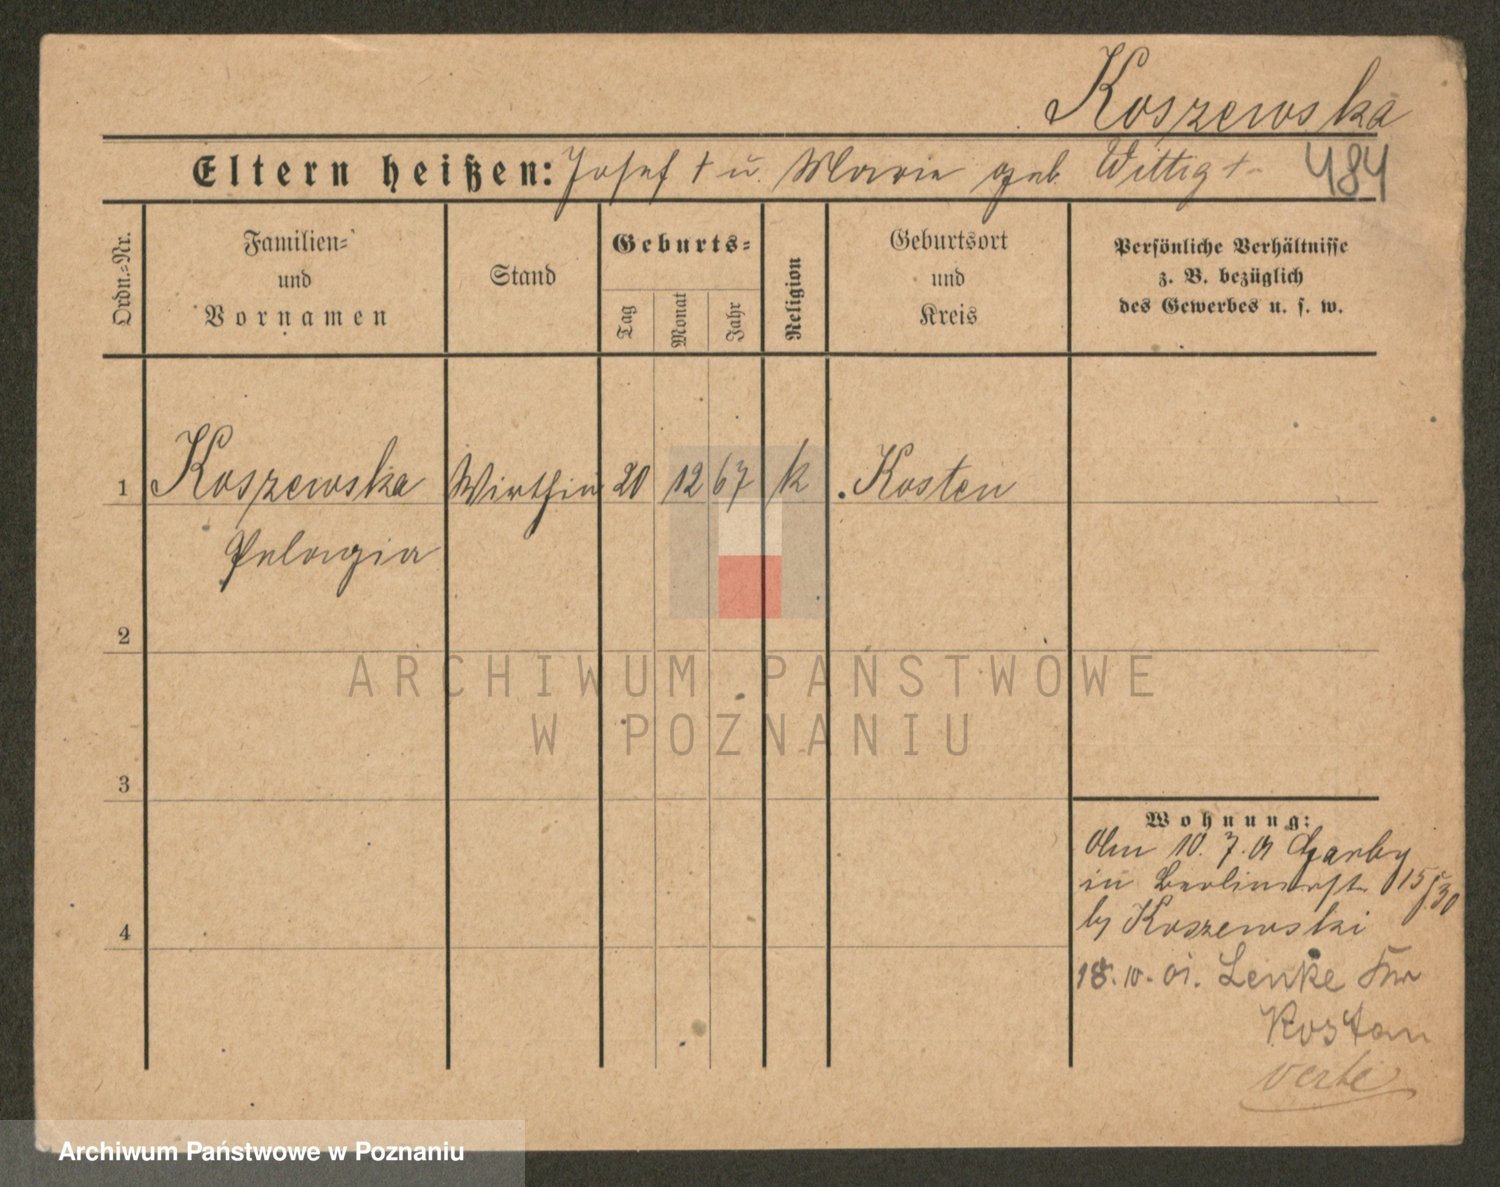 Koszewska
Eltern heißen: Josef † u. Marie geb. Wittig †
484
Ordn.-Nr.
Familien-
und
Vornamen
Stand
Geburts-
Tag
Monat
Jahr
Religion
Geburtsort
und
Kreis
Persönliche Verhältnisse
z. B. bezüglich
des Gewerbes u. s. w.
1 Koszewska Wirthin 20 12 67 k Kosten
Pelagia
2
ARCHIWUM PAŃSTWOWE
W POZNANIU
3
Wohnung:
10. 7. 01
in Berlinerstr. 15
by Koszewski
4
18. 10. 01. Lenke Kr
Kosten
verte
Archiwum Państwowe w Poznaniu